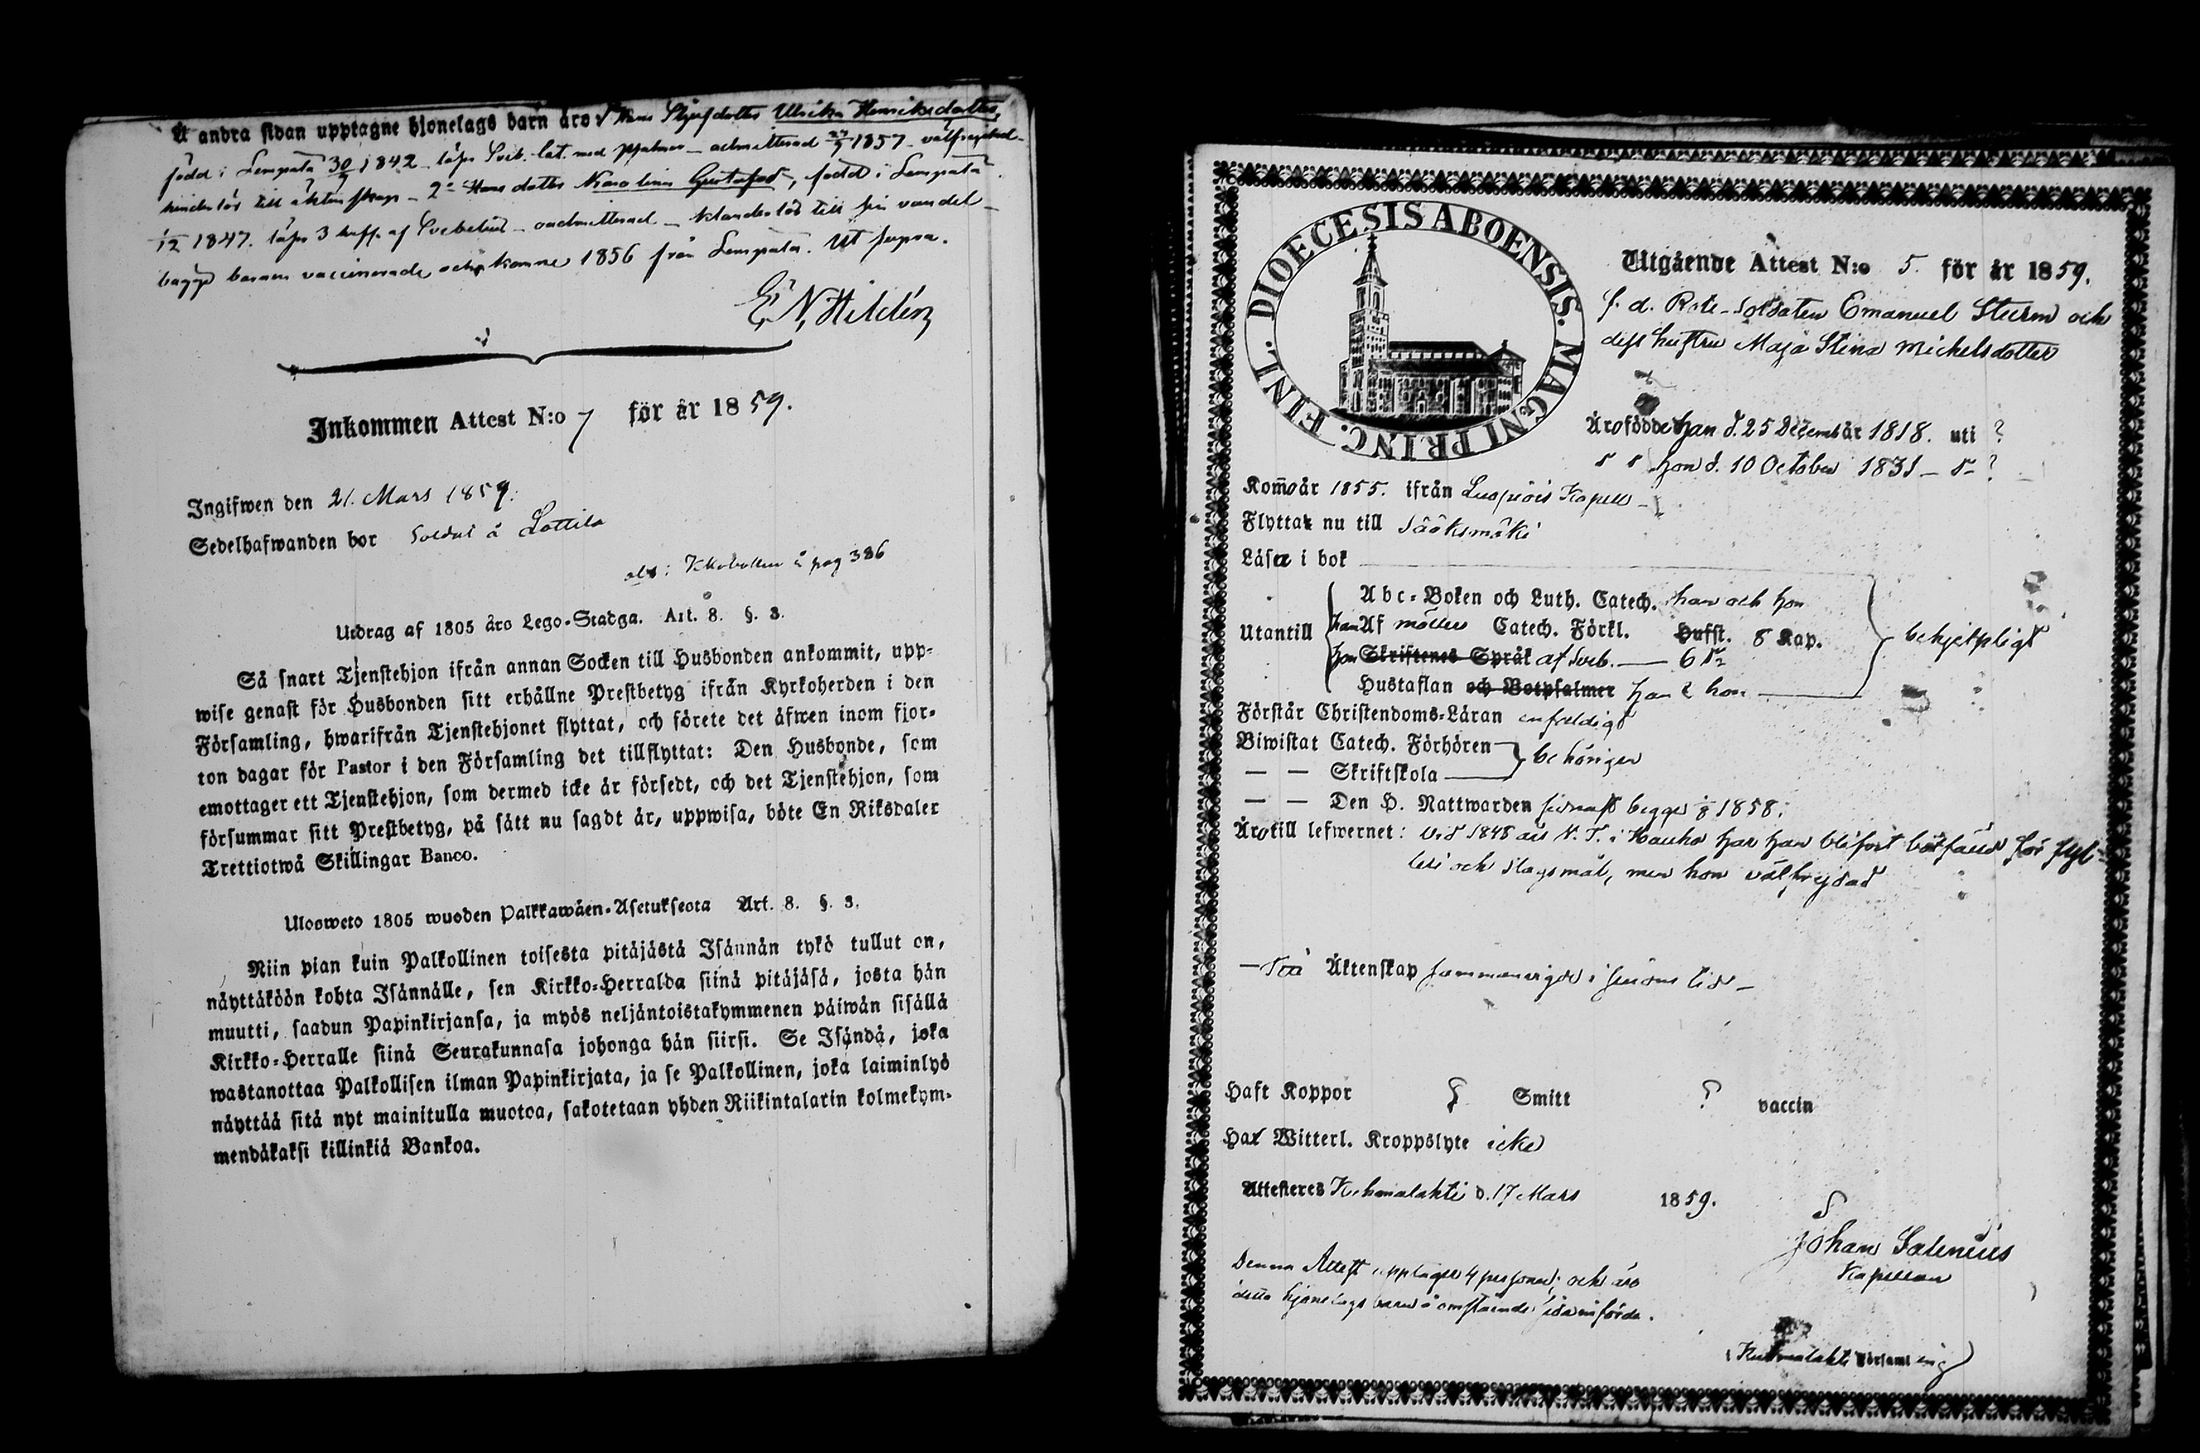 Å andra sidan upptagne hjonelags barn äro: Hans Styfdotter Ulrika Henriksdotter,
född i Lempäla 30 1842 - läser Sveb. lät. med psalmer - admitterad 1857 - välfrejdad -
hinderlös till äktenskap - 2o Hans dotter Karolina Gustafva, född i Lempäla
1/12 1847. läser 3 huff. af Svebelius - oadmitterad - klanderlös till sin vandel -
bägge barnen vaccinerade och komne 1856 från Lempäla. Ut supra.
E. N. Hildén
Inkommen Attest N:o 7 för år 1859.
Ingifwen den 21. Mars 1859.
Sedelhafwanden bor Soldat å Lottila
pag 386
Utdrag af 1805 års Lego-Stadga. Art. 8. §. 3.
Så snart Tjenstehjon ifrån annan Socken till Husbonden ankommit, upp-
wise genast för Husbonden sitt erhållne Prestbetyg ifrån Kyrkoherden i den
Församling, hwarifrån Tjenstehjonet flyttat, och förete det äfwen inom fjor-
ton dagar för Pastor i den Församling det tillflyttat: Den Husbonde, som
emottager ett Tjenstehjon, som dermed icke är försedt, och det Tjenstehjon, som
försummar sitt Prestbetyg, på sätt nu sagdt är, uppwisa, böte En Riksdaler
Trettiotwå Skillingar Banco.
Ulosweto 1805 wuoden Palkkawäen-Asetuksesta Art. 8. §. 3.
Niin pian kuin Palkollinen toisesta pitäjästä Isännän tykö tullut on,
näyttäköön kohta Isännälle, sen Kirkko-Herralda siinä pitäjäsä, josta hän
muutti, saadun Papinkirjansa, ja myös neljäntoistakymmenen päiwän sisällä
Kirkko-Herralle siinä Seurakunnasa johonga hän siirsi. Se Isändä, joka
wastanottaa Palkollisen ilman Papinkirjata, ja se Palkollinen, joka laiminlyö
näyttää sitä nyt mainitulla muotoa, sakotetaan yhden Riikintalarin kolmekym-
mendäkaksi killinkiä Bankoa.
DIOECESIS ABOENSIS. MAGNI PRINC. FINL.
Utgående Attest N:o 5. för år 1859.
f. d. Rote-Soldaten Emanuel Sturm och
dess hustru Maja Stina Michelsdotter
Äro födde han d. 25 December år 1818. uti ?
hon d. 10 October 1831 - ?
Kom̄o år 1855. ifrån Luopiois Kapell -
Flytta nu till Sääksmäki
Läsa i bok
Utantill
Abc-Boken och Luth. Catech. han och hon
han Af möllers Catech. Förkl. Hufst. 8 Kap.
hon Skriftenes Språk af Sveb. 6
Hustaflan och Botpsalmer han & hon
behjelpligt
Förstår Christendoms-Läran enfaldigt
Biwistat Catech. Förhören
— — Skriftskola
behörigen
— — Den H. Nattwarden sednast begge 1858.
Äro till lefwernet: Vid 1848 års V. T. i Hauho har han blifvit botfäld för fyl-
leri och slagsmål, men hon välfrejdad
Äktenskap sammanvigde i sinom tid -
Haft Koppor ? Smitt ? vaccin
Har Witterl. Kroppslyte icke
Attesteres Kuhmalahti d. 17 Mars 1859.
Johan Salenius
Kapellan
Denna Attest upptager 4 personer; och äro
detta hjonelags barn å omstående sida införde.
(Kuhmalahti Församling)